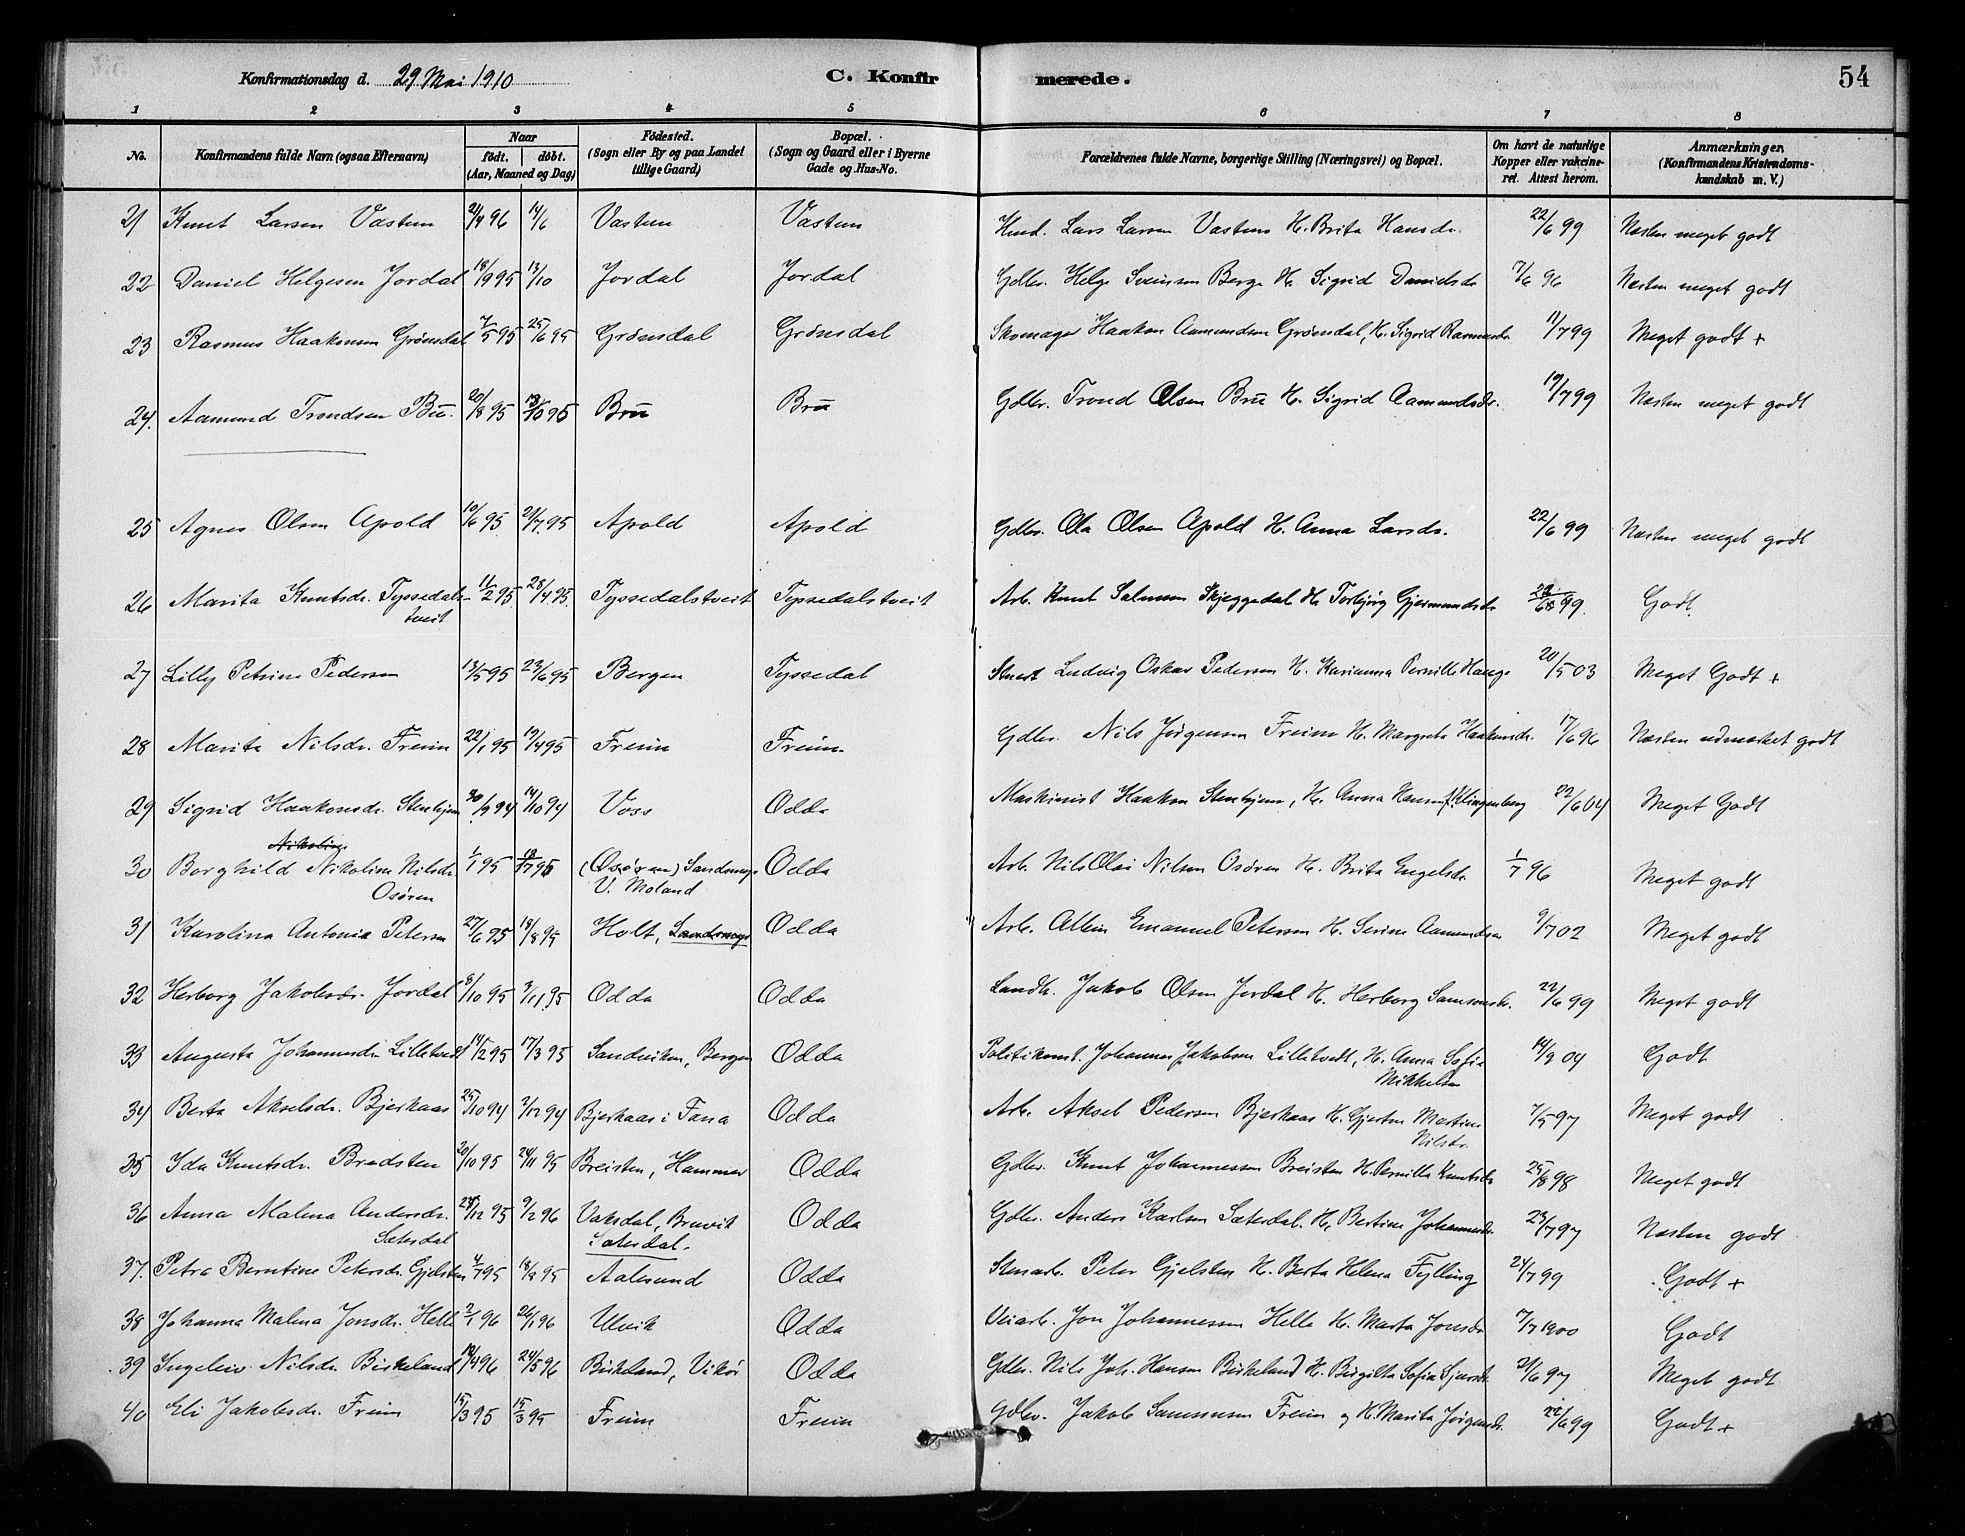 Konfirmationsdag d. 29 Mai 1910 C. Konfirmerede. 54
1 2 3 4 5 6 7 8
No. Konfirmandens fulde Navn (ogsaa Efternavn) Naar født. døbt. (Aar, Maaned og Dag) Fødested. (Sogn eller By og paa Landet tillige Gaard) Bopæl. (Sogn og Gaard eller i Byerne Gade og Hus-No. Forældrenes fulde Navne, borgerlige Stilling (Næringsvei) og Bopæl. Om havt de naturlige Kopper eller vakcineret. Attest herom. Anmærkninger. (Konfirmandens Kristendomskundskab m. V.)
21 Knut Larsen Vastun 21/4 96 14/6 Vastun Vastun Husd. Lars Larsen Vastun H. Brita Hansdr. 22/6 99 Næsten meget godt
22 Daniel Helgesen Jordal 18/9 95 13/10 Jordal Jordal Gdbr. Helge Svensen Berge H. Sigrid Danielsdr 7/6 96 Næsten meget godt
23 Rasmus Haakonsen Grønsdal 7/5 95 25/6 95 Grønsdal Grønsdal Skomager Haakon Aamundsen Grønsdal, H. Sigrid Rasmusdr. 11/7 99 Meget godt +
24. Aamund Trondsen Bu. 20/8 95 13/10 95 Bru Bru Gdbr. Trond Olsen Bru H. Sigrid Aamundsdr. 19/7 99 Næsten meget godt
25 Agnes Olsen Apold 10/6 95 21/7 95 Apold Apold Gdbr. Ola Olsen Apold H. Anna Larsdr. 22/6 99 Næsten meget godt
26 Marita Knutsdr. Tyssedals- 11/2 95 28/4 95 Tyssedalstveit Tyssedalstveit Arb. Knut Salmsen Skjeggedal H. Torbjørg Gjermundsdr 99 Godt
tveit
27 Lilly Petrine Pedersen 13/5 95 23/6 95 Bergen Tyssedal Ludvig Oskar Pedersen H. Marianna Pernille Hauge 20/5 03 Meget Godt +
28 Marita Nilsdr. Freim 22/1 95 19/4 95 Freim Freim. Gdbr. Nils Jørgensen Freim H. Margreta Haakonsdr. 17/6 96 Næsten udmærket godt
29 Sigrid Haakonsdr. Stenhjem 30/9 94 14/10 94 Voss Odda Maskinist Haakon Stenhjem, H. Anna Hansen f. Klingenberg 22/6 04 Meget Godt
Nikoline
30 Borghild Nikoline Nilsdr. 1/1 95 (Osøren) Sandsmyr Odda Arb. Nils Olai Nilsen Osøren H. Brita Engelsdr. 1/7 96 Meget godt
Osøren V. Moland
31 Karolina Antonie Petersen 27/6 95 18/8 95 Holt, Sandsmyr Odda Arb. Albin Emanuel Petersen H. Serine Aamundsen 9/7 02 Meget godt
32 Herborg Jakobsdr. Jordal 8/10 95 3/11 95 Odda Odda Landh. Jakob Olsen Jordal H. Herborg Samsonsdr. 22/6 99 Meget godt
33 Augusta Johannesdr. Lilletvedt 14/2 95 17/3 95 Sandviken, Bergen Odda Politikonst. Johannes Jakobsen Lilletvedt, H. Anna Sofie 14/9 04 Godt
Mikkelsen
34 Berta Akselsdr. Bjerkaas 25/10 94 2/12 94 Bjerkaas i Fana Odda Arb. Aksel Pedersen Bjerkaas H. Gjertine Martine 7/5 97 Meget godt
Nilsdr.
35 Ida Knutsdr. Bredsten 20/10 95 24/11 95 Breisten, Hammer Odda Gdbr. Knut Johannessen Breisten H. Pernilla Knutsdr 25/8 98 Meget godt
36 Anna Malena Andersdr. 28/12 95 9/2 96 Vaksdal, Bruvik Odda Gdbr. Anders Karlsen Sætersdal. H. Bertine Johannesdr. 23/7 97 Næsten godt
Sætersdal Sætersdal.
37. Petra Berntine Petersdr. Gjelsten 4/7 95 18/8 95 Aalesund Odda Stenarb. Peter Gjelsten H. Berta Helena Fylling 24/7 99 Godt +
38 Johanna Malena Jonsdr. Helle 2/1 96 26/1 96 Ulvik Odda Veiarb. Jon Johannessen Helle H. Marta Jonsdr. 17/7 1900 Godt
39 Ingeleiv Nilsdr. Birkeland 19/4 96 24/5 96 Birkeland, Vikør Odda Gdbr. Nils Joh. Hansen Birkeland H. Birgitta Sofia Sjursdr. 21/6 97 Meget godt
40 Eli Jakobsdr. Freim 15/3 95 15/3 95 Freim Freim Gdbr. Jakob Samsonsen Freim og H. Marita Jørgensdr. 22/6 99 Godt +